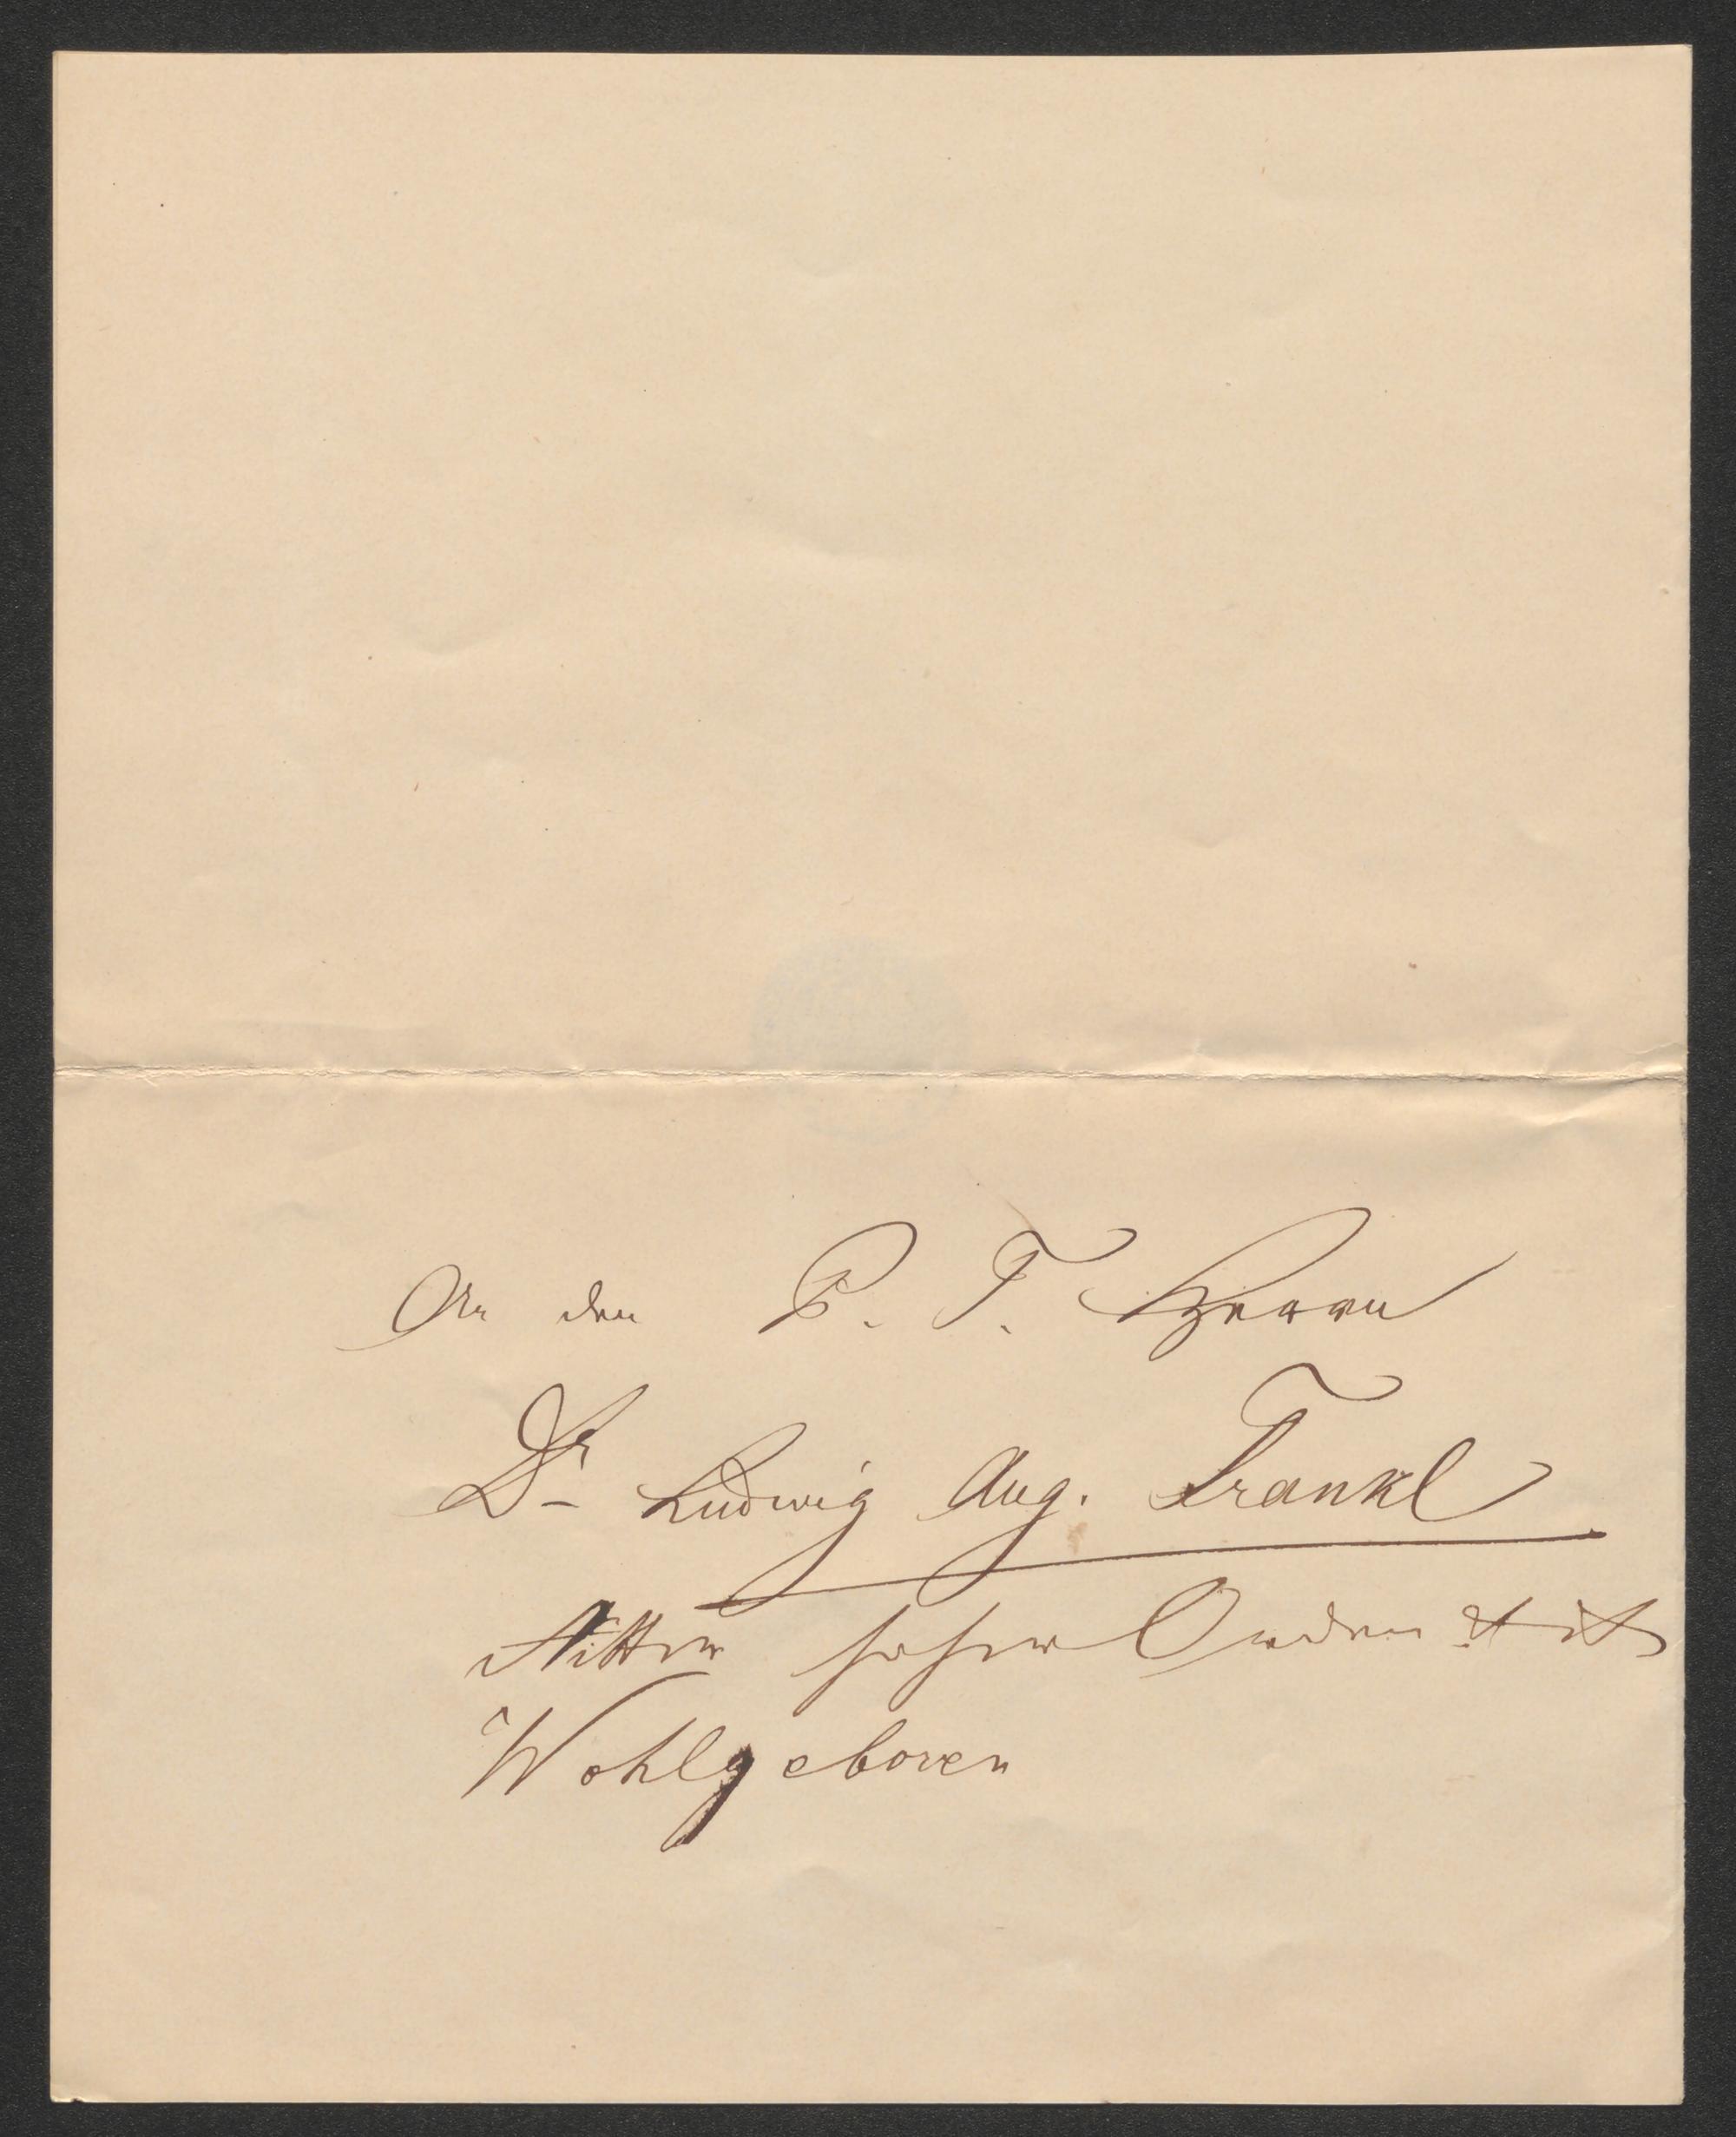 An den P. T. Herrn
Dr Ludwig Aug. Frankl
Ritter hoher Orden etc etc
Wohlgeboren